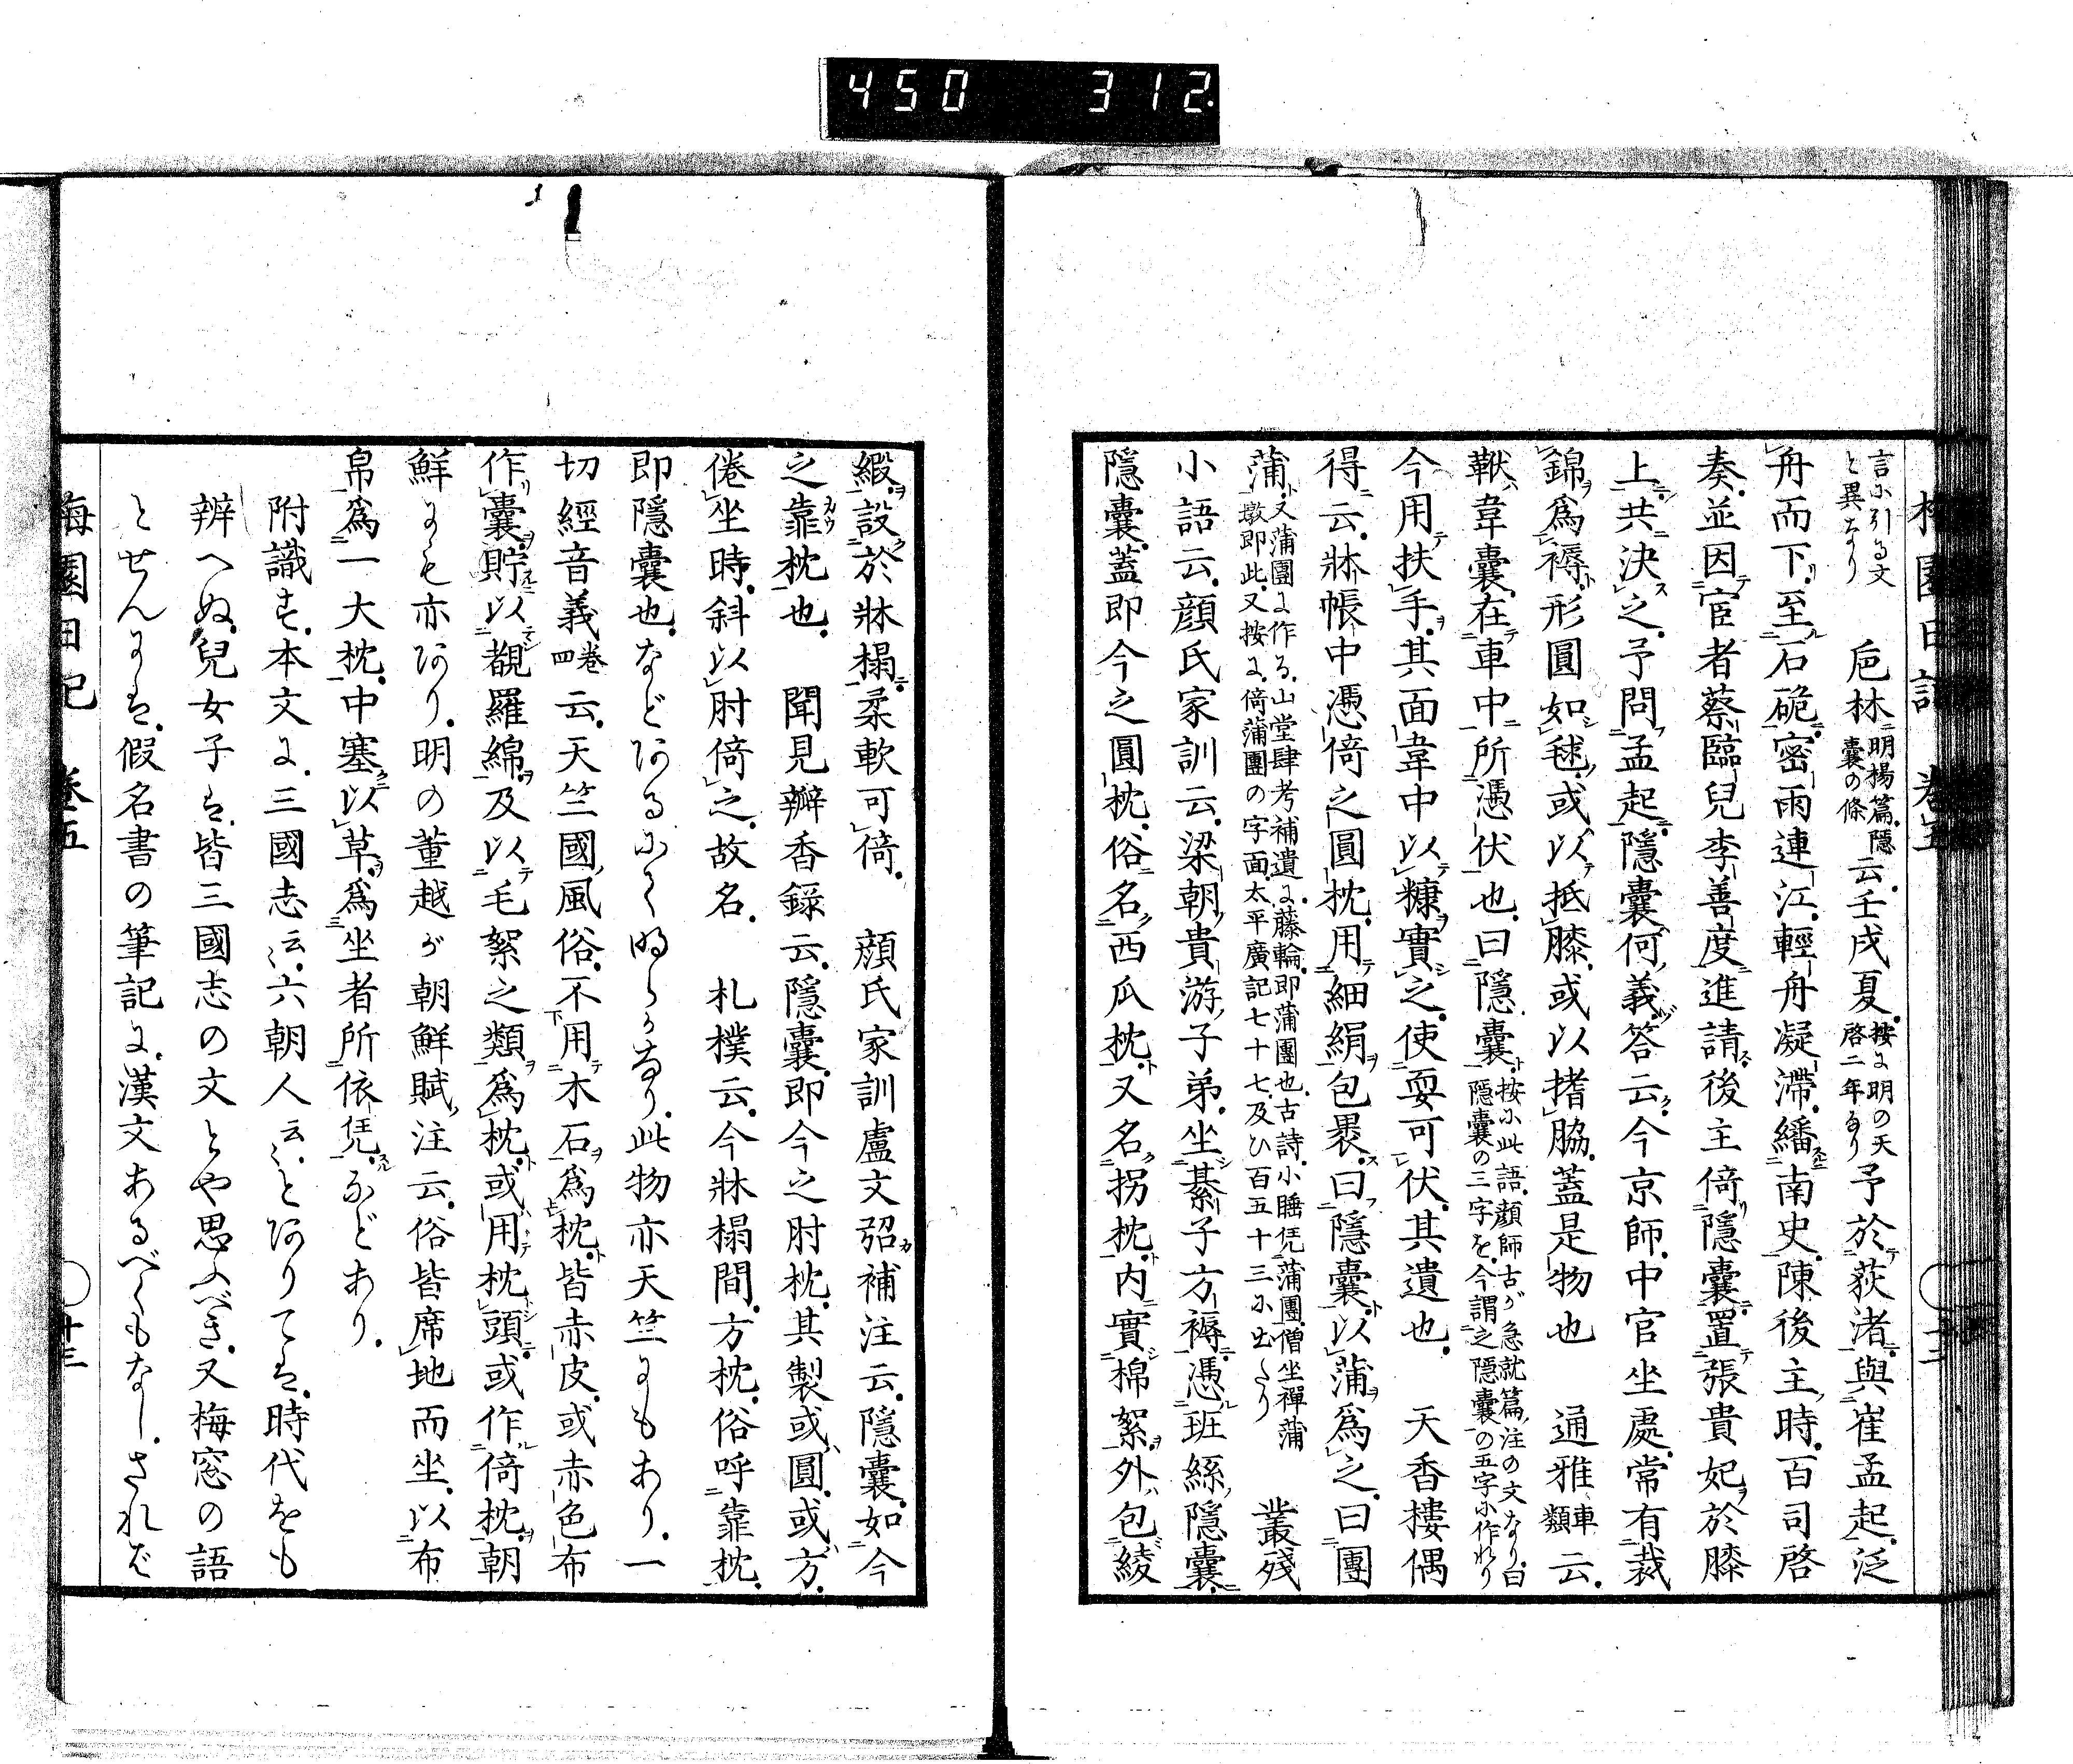 450 312.
梅園日記 卷五
言に引る文と異なり 巵林明楊篇隱囊の條云壬戌夏按に明の天啓二年なり予於荻渚與崔孟起泛
舟而下至石硊密雨連江輕舟凝滯繙南史陳後主時百司啓
奏並因宦者蔡臨兒李善度進請後主倚隱囊置張貴妃於膝
上共決之予問孟起隱囊何義答云今京師中官坐處常有裁
錦爲褥形圓如毬或以抵膝或以搘脇蓋是物也 通雅車類云
韍韋囊在車中所憑伏也曰隱囊按に此語顔師古が急就篇注の文なり白隱囊の三字を今謂之隱囊の五字に作れり
今用扶手其面韋中以糠實之使耎可伏其遺也 天香樓偶
得云牀帳中憑倚之圓枕用細絹包褁曰隱囊以蒲爲之曰團
蒲又蒲團に作る山堂肆考補遺に藤輪即蒲團也古詩小睡凭蒲團僧坐禪蒲墩即此又按に倚蒲團の字面太平廣記七十七及ひ百五十三に出たり 叢殘
小語云顔氏家訓云梁朝貴游子弟坐綦子方褥憑班絲隱囊
隱囊蓋即今之圓枕俗名西瓜枕又名拐枕内實棉絮外包綾
緞設於牀榻柔軟可倚 顔氏家訓盧文弨補注云隱囊如今
之靠枕也 聞見瓣香錄云隱囊即今之肘枕其製或圓或方
倦坐時斜以肘倚之故名 札樸云今牀榻間方枕俗呼靠枕
即隱囊也などあるにて明らかなり此物亦天竺にもあり一
切經音義卷四云天竺國風俗不用木石爲枕皆赤皮或赤色布
作囊貯以覩羅綿及以毛絮之類爲枕或用枕頭或作倚枕朝
鮮にも亦あり明の董越が朝鮮賦注云俗皆席地而坐以布
帛爲一大枕中塞以草爲坐者所依凭などあり
附識す本文に三國志云〻六朝人云〻とありては時代をも
辨へぬ兒女子は皆三國志の文とや思ふべき又梅窓の語
とせんには假名書の筆記に漢文あるべくもなしされば
梅園日記 卷五 十三